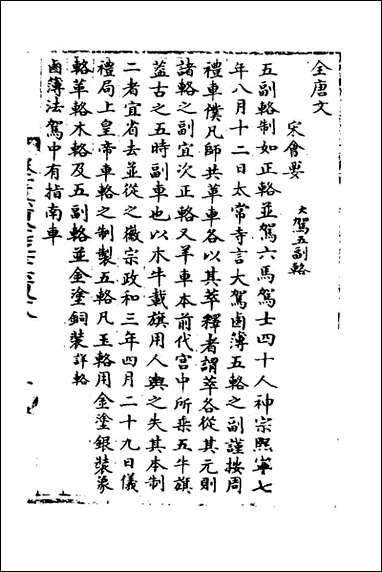 全唐文
宋會要
大駕五副輅
五副輅制如正輅並駕六馬駕士四十人神宗熙寧七
年八月十二日太常寺言大駕鹵簿五輅之副謹按周
禮車僕凡師共革車各以其萃釋者謂萃各從其元則
諸輅之副宜次正輅又羊車本前代宮中所乘五牛旗
蓋古之五時副車也以木牛載旗用人輿之失其本制
二者宜省去並從之徽宗政和三年四月二十九日儀
禮局上皇帝車輅之制製五輅凡玉輅用金塗銀裝象
輅革輅木輅及五副輅並金塗銅裝詳輅
鹵簿法駕中有指南車